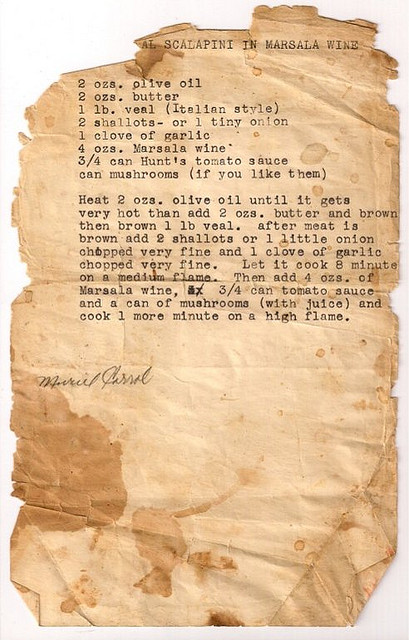 AL SCALAPINI IN MARSALA WINE
2 ozs. olive oil
2 ozs. butter
1 lb. veal (Italian style)
2 shallots- or 1 tiny onion
1 clove of garlic
4 ozs. Marsala wine
3/4 can Hunt's tomato sauce
can mushrooms (if you like them)
Heat 2 ozs. olive oil until it gets
very hot than add 2 ozs. butter and brown
then brown 1 lb veal. after meat is
brown add 2 shallots or 1 little onion
chopped very fine and 1 clove of garlic
chopped very fine. Let it cook 8 minute
on a medium flame. Then add 4 ozs. of
Marsala wine, 3/4 can tomato sauce
and a can of mushrooms (with juice) and
cook 1 more minute on a high flame.